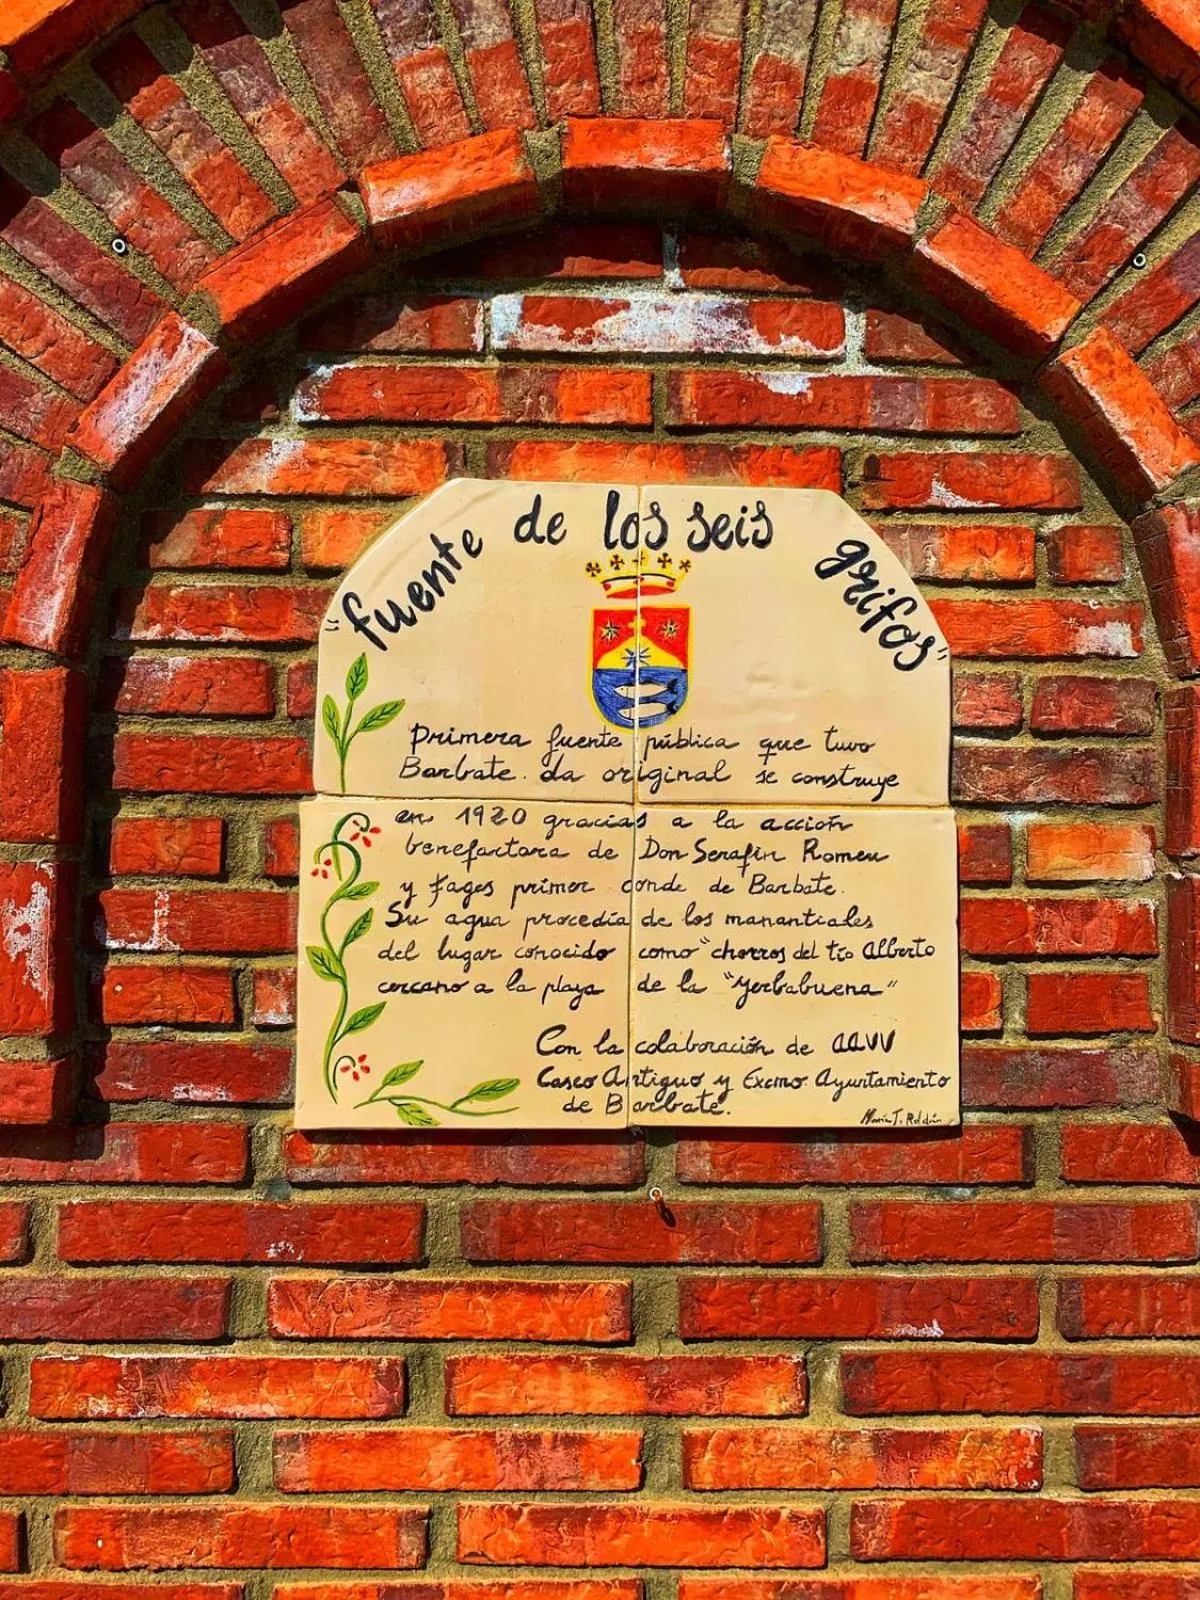 "fuente de los seis grifos"
Primera fuente pública que tuvo
Barbate. La original se construye
en 1920 gracias a la acción
benefactora de Don Serafín Romeu
y Fages primer conde de Barbate.
Su agua procedía de los manantiales
del lugar conocido como "chorros del tío Alberto
cercano a la playa de la "Yerbabuena"
Con la colaboración de AAVV
Casco Antiguo y Excmo. Ayuntamiento
de Barbate.
María J. Roldán